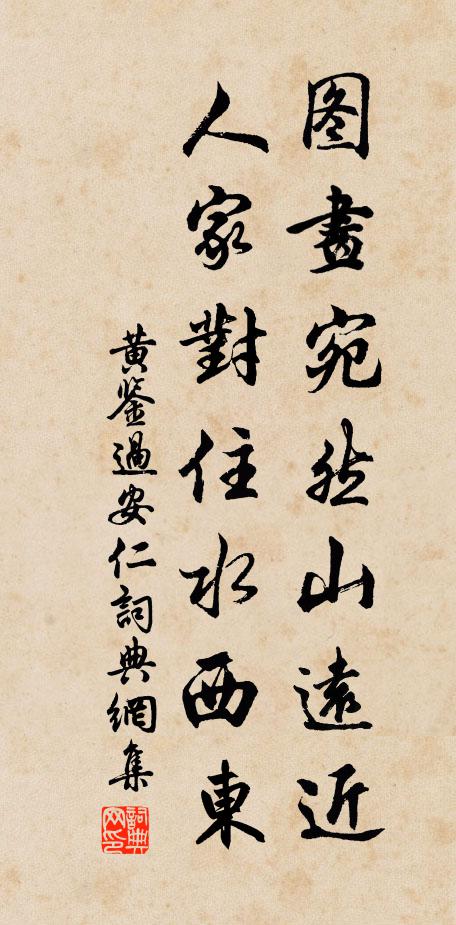 图畫宛然山遠近
人家對住水西東
黄鉴過安仁詞典網集
詞典
网印